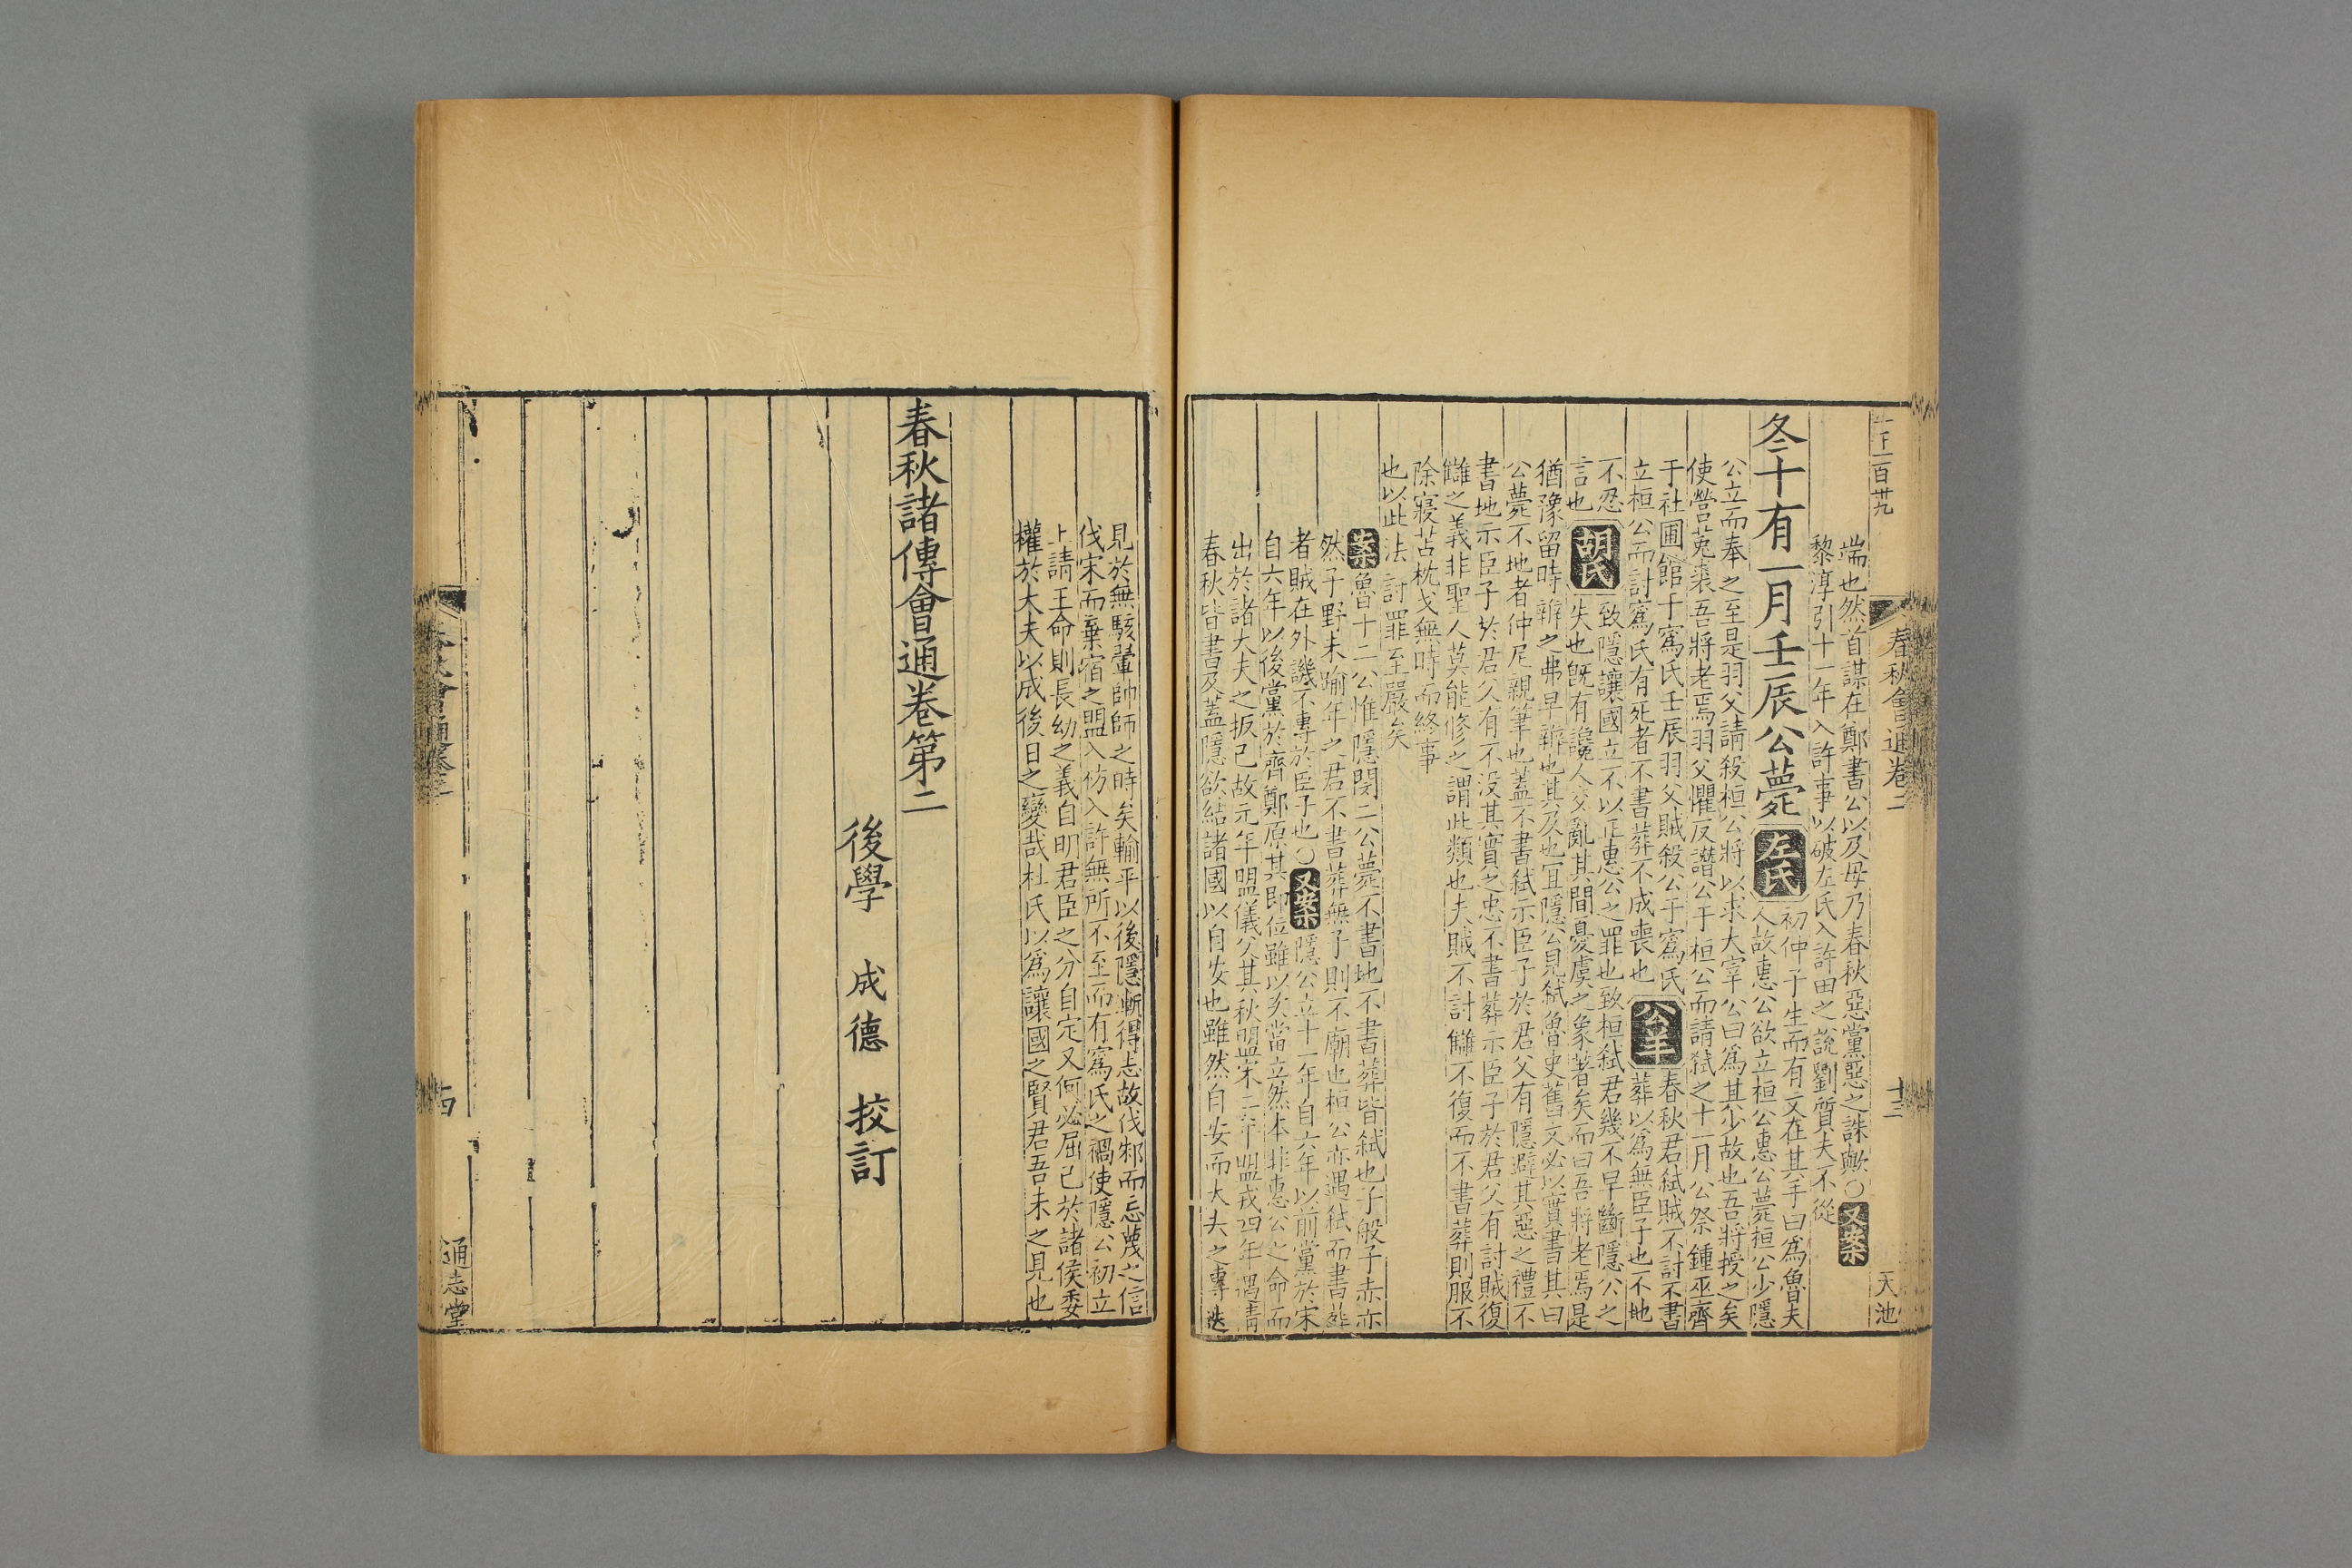 春秋會通卷二
十三
天池
端也然首謀在鄭書公以及毋乃春秋惡黨惡之誅歟〇又案
黎淳引十一年入許事以破左氏入許田之說劉質夫不從
冬十有一月壬辰公薨左氏初仲子生而有文在其手曰爲魯夫
人故惠公欲立桓公惠公薨桓公少隱
公立而奉之至是羽父請殺桓公將以求大宰公曰爲其少故也吾將授之矣
使營菟裘吾將老焉羽父懼反譖公于桓公而請弒之十一月公祭鍾巫齊
于社圃館于寪氏壬辰羽父賊殺公于寪氏
立桓公而討寪氏有死者不書葬不成喪也公羊春秋君弒賊不討不書
葬以爲無臣子也不地
不忍
言也胡氏致隱讓國立不以正惠公之罪也致桓弒君幾不早斷隱公之
失也旣有讒人交亂其間憂虞之象著矣而曰吾將老焉是
猶豫留時辨之弗早辨也其及也宜隱公見弒魯史舊文必以實書其曰
公薨不地者仲尼親筆也蓋不書弒示臣子於君父有隱避其惡之禮不
書地示臣子於君父有不没其實之忠不書葬示臣子於君父有討賊復
讎之義非聖人莫能修之謂此類也夫賊不討讎不復而不書葬則服不
除寢苫枕戈無時而終事
也以此法討罪至嚴矣
案魯十二公惟隱閔二公薨不書地不書葬皆弒也子般子赤亦
然子野未踰年之君不書葬無子則不廟也桓公亦遇弒而書葬
者賊在外譏不專於臣子也〇又案隱公立十一年自六年以前黨於宋
自六年以後黨於齊鄭原其卽位雖以次當立然本非惠公之命而
出於諸大夫之扳己故元年盟儀父其秋盟宋二年盟戎四年遇清
春秋皆書及蓋隱欲結諸國以自安也雖然自安而大夫之專迭
見於無駭翬帥師之時矣輸平以後隱漸得志故伐邾而忘蔑之信
伐宋而棄宿之盟入祊入許無所不至而有寪氏之禍使隱公初立
上請王命則長幼之義自明君臣之分自定又何必屈己於諸侯委
權於大夫以成後日之變哉杜氏以爲讓國之賢君吾未之見也
春秋諸傳會通卷第二
後學 成德 挍訂
通志堂